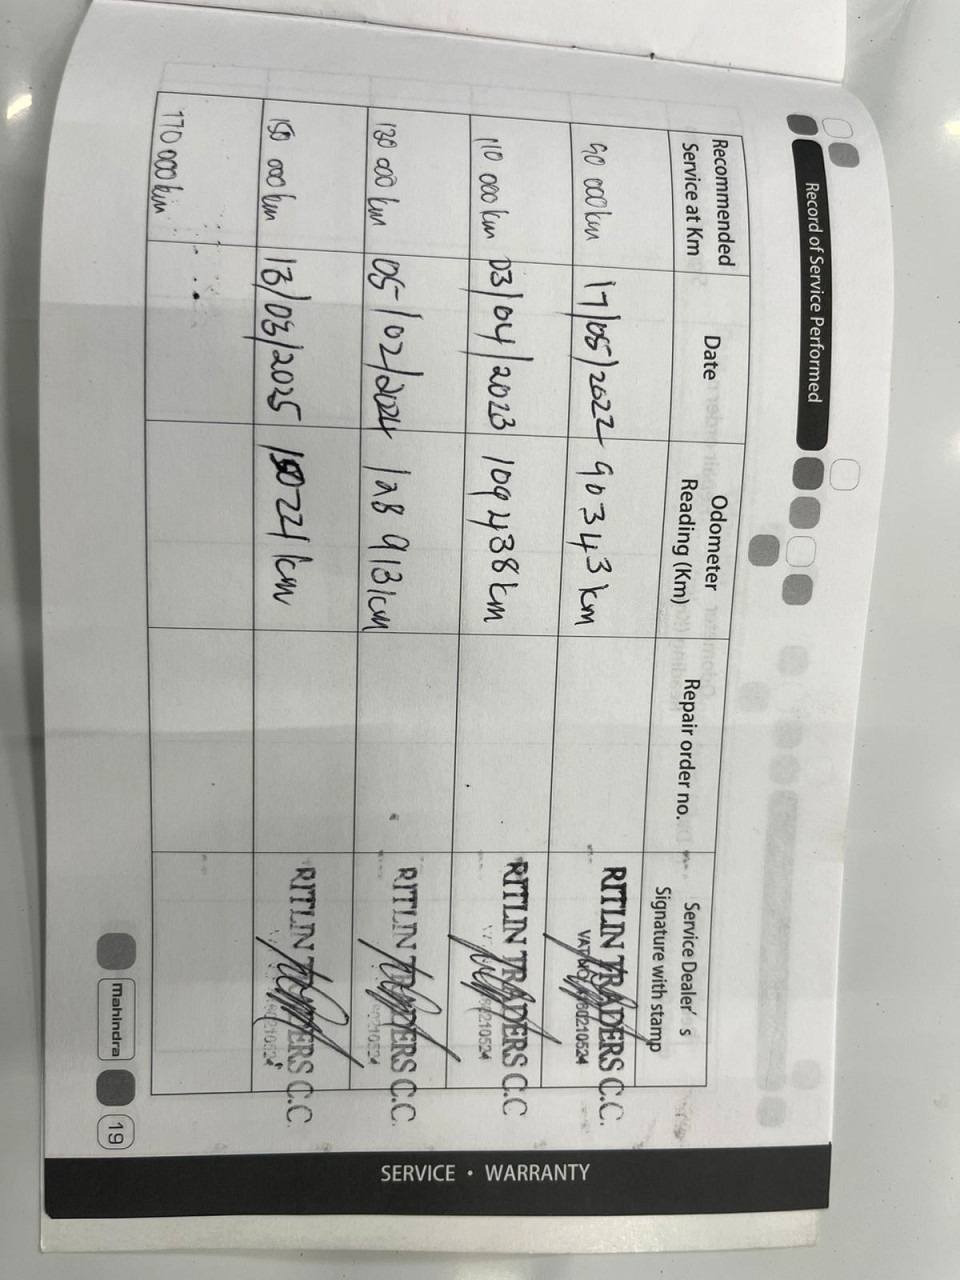 Record of Service Performed
Recommended Service at Km
Date
Odometer Reading (Km)
Repair order no.
Service Dealer's Signature with stamp
90 000km 17/05/2022 90343km RITLIN TRADERS C.C.
VAT NO 60210524
110 000km 03/04/2023 109438km RITLIN TRADERS C.C
60210524
130 000km 05/02/2024 128 913km RITLIN TRADERS C.C.
60210524
150 000km 13/03/2025 150221km RITLIN TRADERS C.C.
60210524
170 000km
mahindra
19
SERVICE • WARRANTY